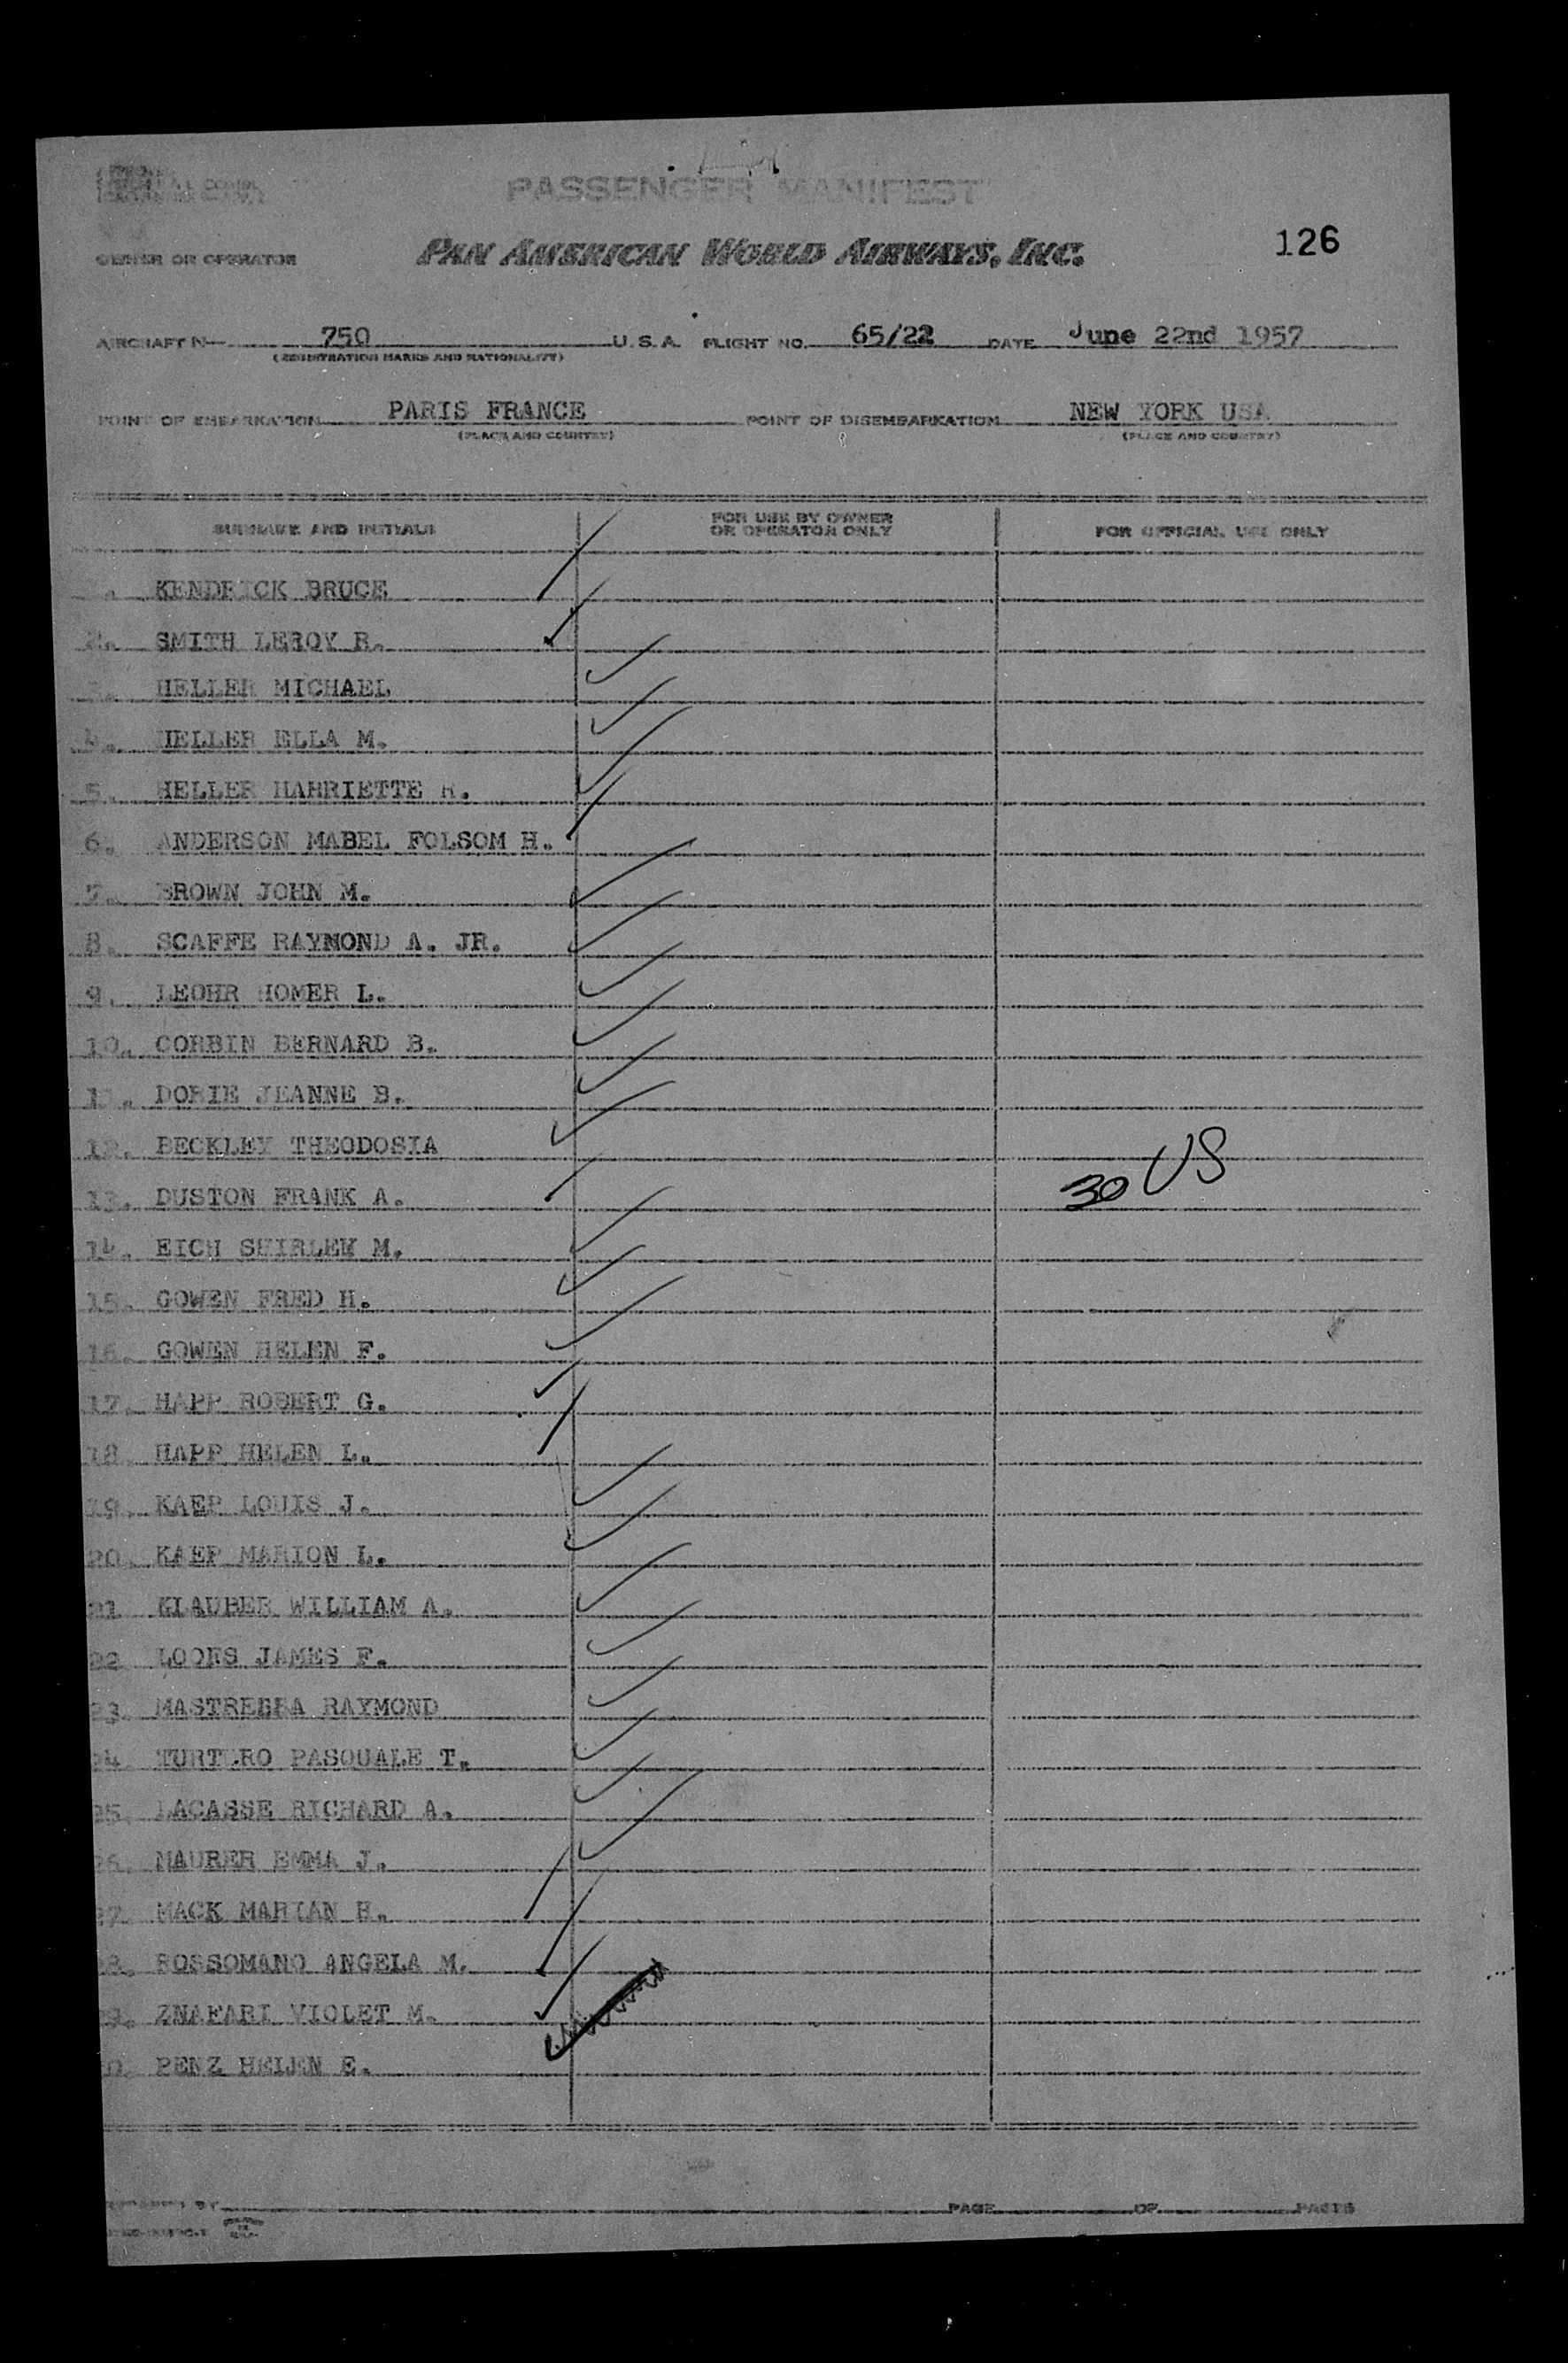 PASSENGER MANIFEST
126
OWNER OR OPERATOR PAN AMERICAN WORLD AIRWAYS, INC.
AIRCRAFT N— 750 U.S.A. FLIGHT NO. 65/22 DATE June 22nd 1957
(REGISTRATION MARKS AND NATIONALITY)
POINT OF EMBARKATION PARIS FRANCE POINT OF DISEMBARKATION NEW YORK USA
(PLACE AND COUNTRY) (PLACE AND COUNTRY)
SURNAME AND INITIALS FOR USE BY OWNER OR OPERATOR ONLY FOR OFFICIAL USE ONLY
KENDRICK BRUCE
2. SMITH LEROY R.
HELLER MICHAEL
4. HELLER ELLA M.
5. HELLER HARRIETTE R.
6. ANDERSON MABEL FOLSOM H.
7. BROWN JOHN M.
8. SCAFFE RAYMOND A. JR.
9. LEOHR HOMER L.
10. CORBIN BERNARD B.
11. DORIE JEANNE B.
12. BECKLEY THEODOSIA
13. DUSTON FRANK A. 30 US
14. EICH SHIRLEY M.
15. GOWEN FRED H.
16. GOWEN HELEN F.
17. HAPP ROBERT G.
18. HAPP HELEN L.
19. KAEP LOUIS J.
20. KAEP MARION L.
21 KLAUBER WILLIAM A.
22 JAMES F.
23. RAYMOND
24. PASQUALE T.
25. LACASSE RICHARD A.
26. MAURER EMMA J.
27. MACK MARIAN H.
28. ROSSOMANO ANGELA M.
29. VIOLET M.
30. PENZ HELEN E.
PREPARED BY PAGE OF PAGES